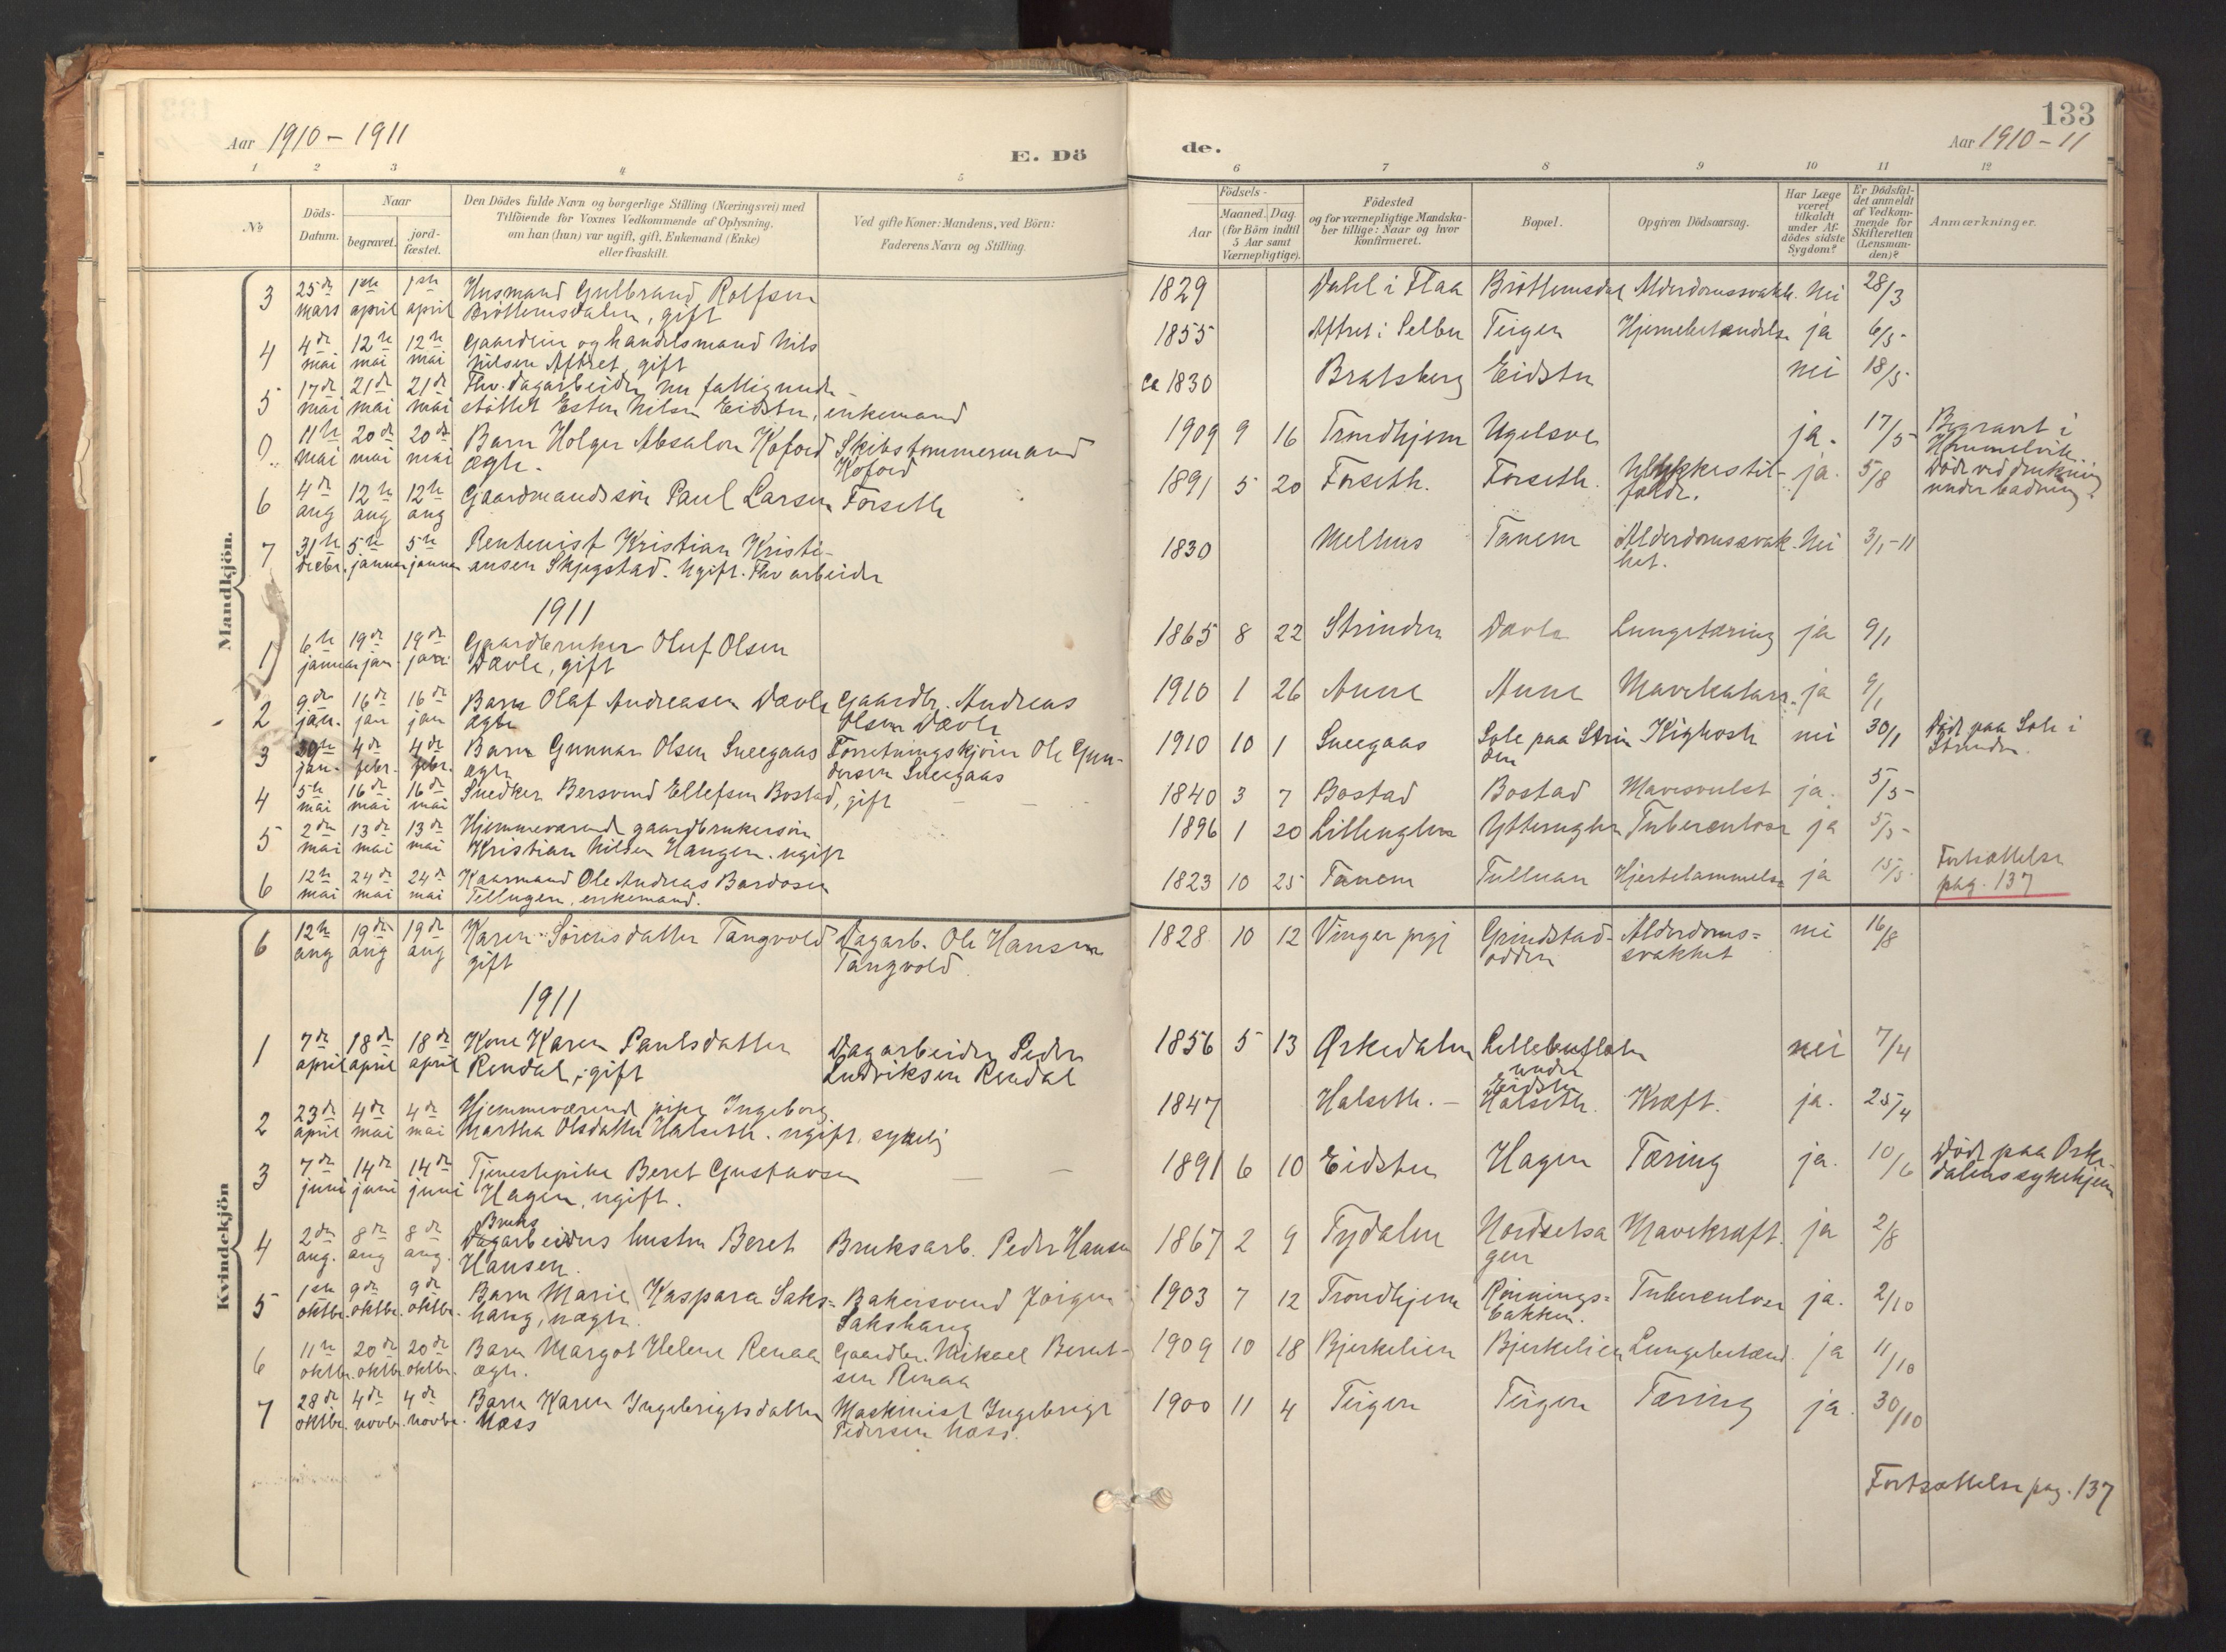 133
Aar 1910 – 1911
E. Dö
de.
Aar 1910 – 11
1 2 3 4 5 6 7 8 9 10 11 12
No
Döds-Datum.
Naar
begravet.
jord-fæstet.
Den Dödes fulde Navn og borgerlige Stilling (Næringsvei) med
Tilföiende for Voxnes Vedkommende af Oplysning,
om han (hun) var ugift, gift, Enkemand (Enke)
eller fraskilt.
Ved gifte Koner: Mandens, ved Börn:
Faderens Navn og Stilling.
Födsels-
Aar
Maaned. Dag.
(for Börn indtil
5 Aar samt
Værnepligtige).
Födested
og for værnepligtige Mandska-
ber tillige: Naar og hvor
konfirmeret.
Bopæl.
Opgiven Dödsaarsag.
Har Læge
været
tilkaldt
under Af-
dödes sidste
Sygdom?
Er Dödsfal-
det anmeldt
af Vedkom-
mende for
Skifteretten
(Lensman-
den)?
Anmærkninger.
Mandkjön.
3 25de 1ste 1ste Husmand Gulbrand Rolfsen 1829 Dahl i Flaa Bröttemsdal Alderdomssvakh. Nei 28/3
mars april april Bröttemsdalen, gift
4 4de 12te 12te Gaardeier og handelsmand Nils 1855 Aftret i Selbu Teigen Hjernebetændelse ja 6/5
mai mai mai Nilsen Aftret, gift
5 17de 21de 21de Fhv. dagarbeider nu fattigunder- ca 1830 Bratsberg Eidsten nei 18/5
mai mai mai støttet Esten Nilsen Eidsten, enkemand
0 11te 20de 20de Barn Holger Absalon Kofoed Skibstømmermand 1909 9 16 Trondhjem Ugelsve ja. 17/5 Begravet i
mai mai mai ægte. Kofoed Hommelvik.
6 4de 12te 12te Gaardmandssön Paul Larsen Forseth 1891 5 20 Forseth. Forseth. Ulykkestil- ja. 5/8 Døde ved drukning
aug aug aug fælde. under badning.
7 31te 5te 5te Rentenist Kristian Kristi- 1830 Melhus Tanem Alderdomssvak- Nei 3/1-11
decbr. januar januar ansen Skjegstad. Ugift. Fhv arbeider het.
1911
1 6te 19de 19de Gaardbruker Oluf Olsen 1865 8 22 Strinden Dævle Lungetæring ja 9/1
januar jan. jan. Dævle, gift
2 9de 16de 16de Barn Olaf Andreasen Dævle Gaardbr. Andreas 1910 1 26 Aune Aune Mavekatarr. ja 9/1
jan. jan jan ægte Olsen Dævle
3 30te 4de 4de Barn Gunnar Olsen Sneegaas Forretningskjører Ole Gun- 1910 10 1 Sneegaas Sole paa Strin Kighoste nei 30/1 Död paa Sole i
jan. febr. febr. ægte dersen Sneegaas den Strinden.
4 5te 16de 16de Snedker Bersvend Ellefsen Bostad, gift 1840 3 7 Bostad Bostad Mavesvulst ja. 5/5
mai mai mai
5 2den 13de 13de Hjemmeværende gaardbrukersön 1896 1 20 Lilleuglen Ytteruglen Tuberculose ja 5/5
mai mai mai Kristian Nilsen Haugen. ugift
6 12te 24de 24de Kaarmand Ole Andreas Bardosen 1823 10 25 Tanem Tulluan Hjertelammelse ja 15/5. Fortsættelse
mai mai mai Tellugen, enkemand. pag. 137
Kvindekjön
6 12te 19de 19de Karen Sörensdatter Tangvold Dagarb. Ole Hansen 1828 10 12 Vinger prgj Grindstad- Alderdoms= nei 16/8
aug aug aug gift Tangvold. odden svakhet
1911
1 7de 18de 18de Kone Karen Paulsdatter Dagarbeider Peder 1856 5 13 Ørkedalen nei 7/4
april april april Rendal, gift Ludviksen Rendal under
Eidsten
2 23de 4de 4de Hjemmeværende pike Ingeborg 1847 Halseth. – Halseth. Kræft. ja. 25/4
april mai mai Martha Olsdatter Halseth. ugift, sykelig
3 7de 14de 14de Tjenestepike Beret Gustavsen 1891 6 10 Eidsten Hagen Tæring ja. 10/6 Död paa Orke-
juni juni juni Hagen, ugift. dalens sykehjem
4 2de 8de 8de Bruks
aug. aug aug. Dagarbeiders hustru Beret Bruksarb. Peder Hansen 1867 2 9 Tydalen Nordsetha Mavekræft. ja 2/8
Hansen. gen
5 1ste 9de 9de Barn Marie Kaspara Saks= Bakersvend Jörgen 1903 7 12 Trondhjem Rönnings= Tuberculose ja. 2/10
oktbr. oktbr. oktbr. haug, uægte. Sakshaug bakken.
6 11te 20de 20de Barn Margot Helene Renaa Gaardbr. Mikael Bernt- 1909 10 18 Bjerkelien Bjerkelien Lungebetænd. ja 11/10
oktbr. oktbr. oktbr. ægte. sen Renaa
7 28de 4de 4de Barn Karen Ingebrigtsdatter Maskinist Ingebrigt 1900 11 4 Teigen Teigen Tæring ja. 30/10
oktbr. novbr. novbr. Næss Pedersen Næss.
Fortsættelse pag. 137